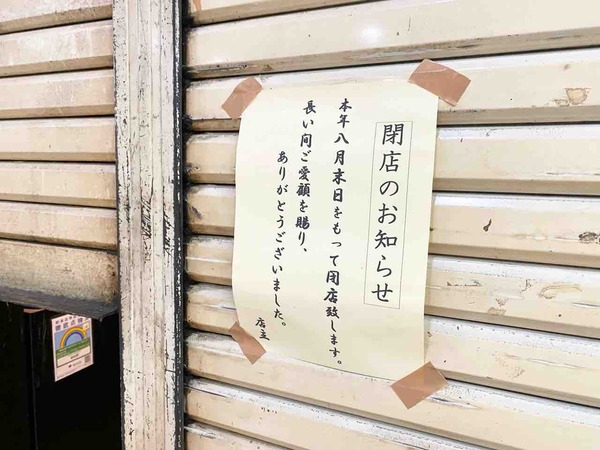 閉店のお知らせ
本年八月末日をもって閉店致します。
長い間ご愛顧を賜り、
ありがとうございました。
店主